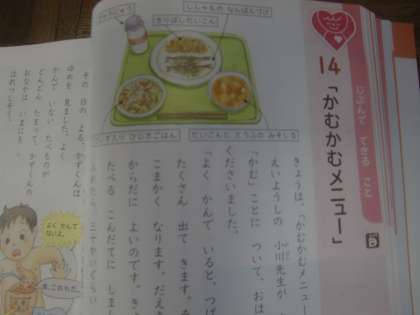 じぶんで できる こと
14「かむかむメニュー」
ぎゅうにゅう
ししゃもの なんばんづけ
きりぼしだいこん
ひじきごはん
だいこんと とうふの みそしる
きょうは、「かむかむメニュー
えいようしの 小川先生が
「かむ」ことに ついて、おは
くださいました。
「よく かんで いると、つば
たくさん 出て きます。そ
こまかく なります。だえき
からだに よいのです。き
たべる こんだてに しまし
その 日の よる、かずくんは
ゆめを 見ました。よく
かんで いない たべものが
どんどん たまって、かずくんの
おなかは いまにも
よく かんで ないよ。